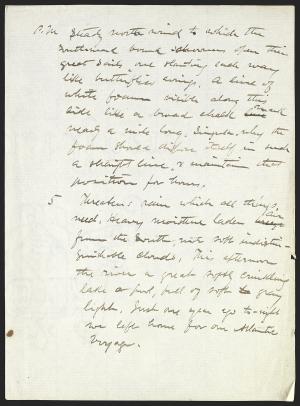 P.M. Steady north wind to which the
southward bound schooners open their
great sails, one slanting each way
like butterflies wings. A line of
white foam visible along the
side like a broad chalk mark
nearly a mile long. Singular why the
foam should diffuse itself in such
a straight line, & maintain that
position for hours.
5 Threatens rain which all things
need. Heavy moisture laden air
from the South with soft indistin-
guishable clouds. This afternoon
the river a great soft crinkling
lake or pool, full of soft gray
light. Just one year ago to-night
we left home for our Atlantic
Voyage.